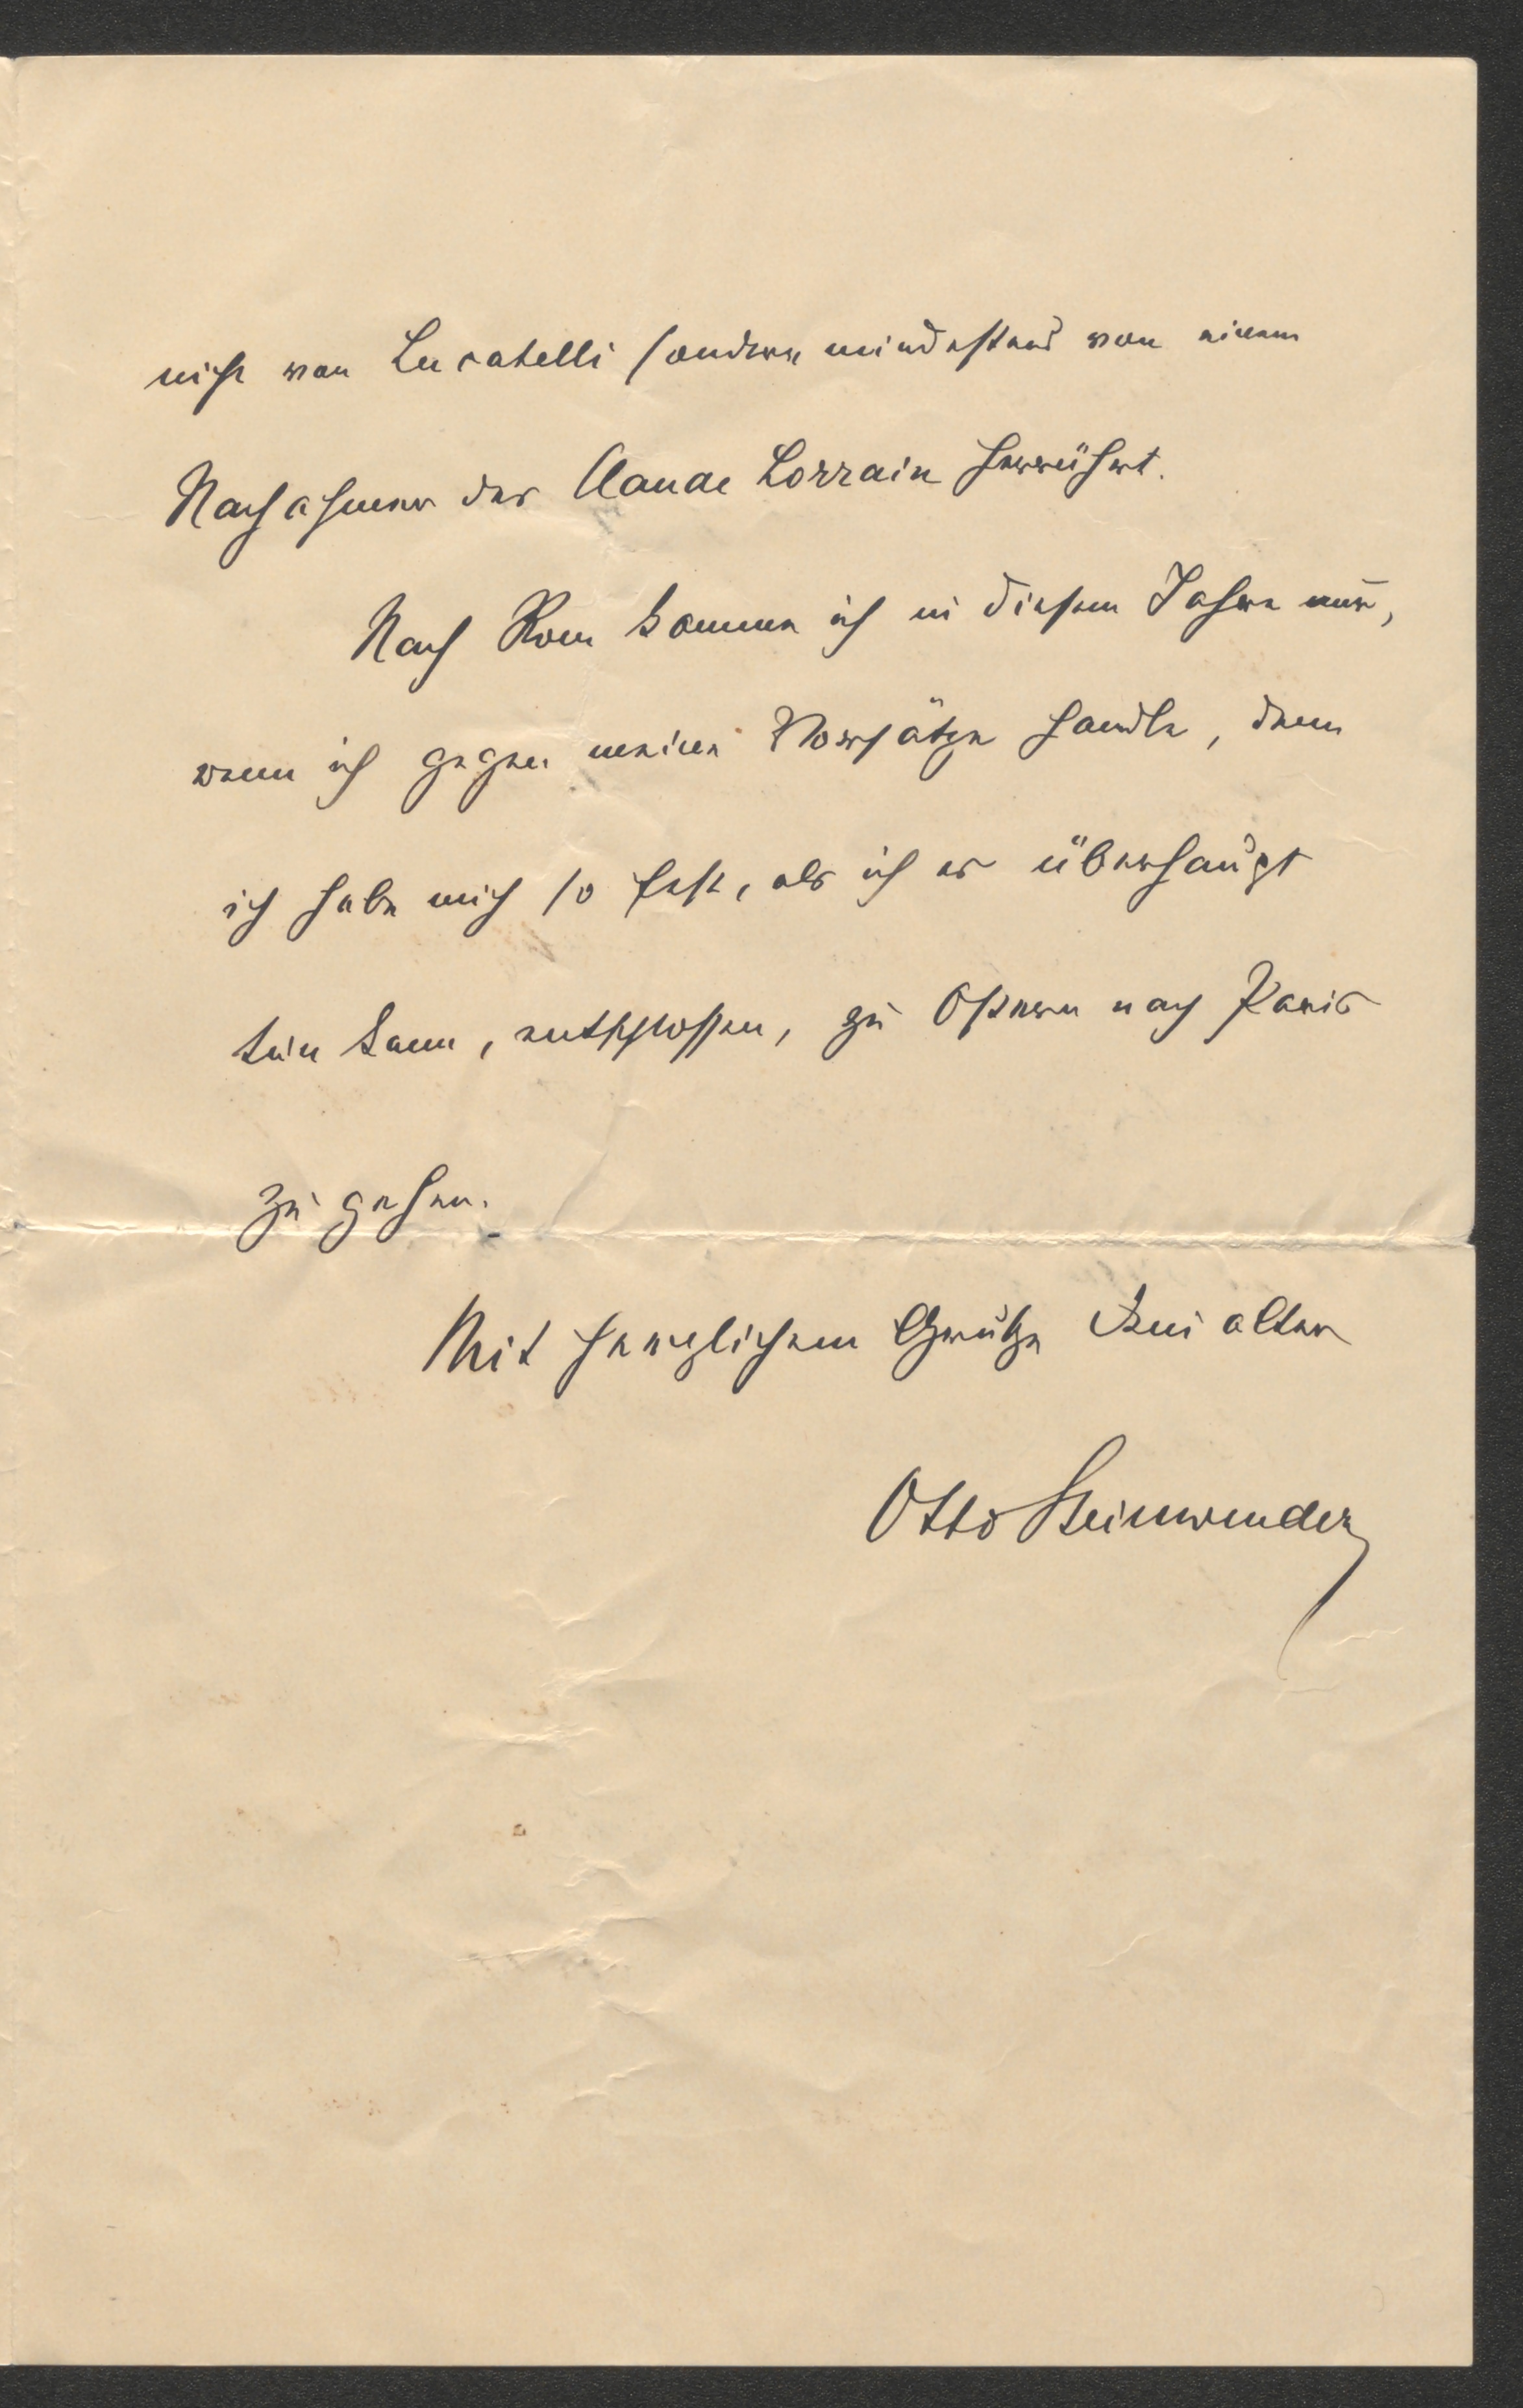 nicht von Lucatelli sondern mindestens von einem
Nachahmer des Claude Lorrain herrührt.
Nach Rom komme ich in diesem Jahre nur,
wenn ich gegen meine Vorsätze handle, denn
ich habe mich so fest, als ich es überhaupt
tun kann, entschlossen, zu Ostern nach Paris
zu gehen.
Mit herzlichem Gruße Dein alter
Otto Steinwender